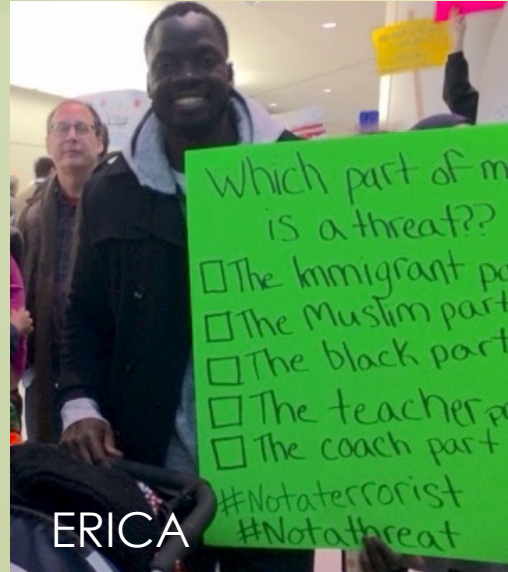 Which part of m
is a threat??
The Immigrant pa
The Muslim part
The black part
The teacher p
The coach part
#Notaterrorist
#Notathreat
ERICA